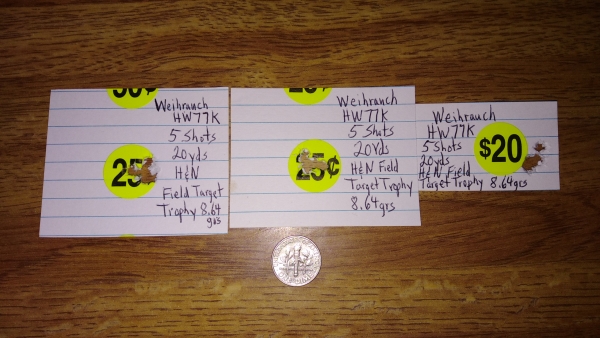 50¢
Weihrauch
HW77K
5 Shots
20yds
H&N
Field Target
Trophy 8.64
grs
25
25¢
Weihrauch
HW77K
5 Shots
20yds
H&N Field
Target Trophy
8.64grs
25¢
Weihrauch
HW77K
5 Shots
20yds
H&N Field
Target Trophy 8.64grs
$20